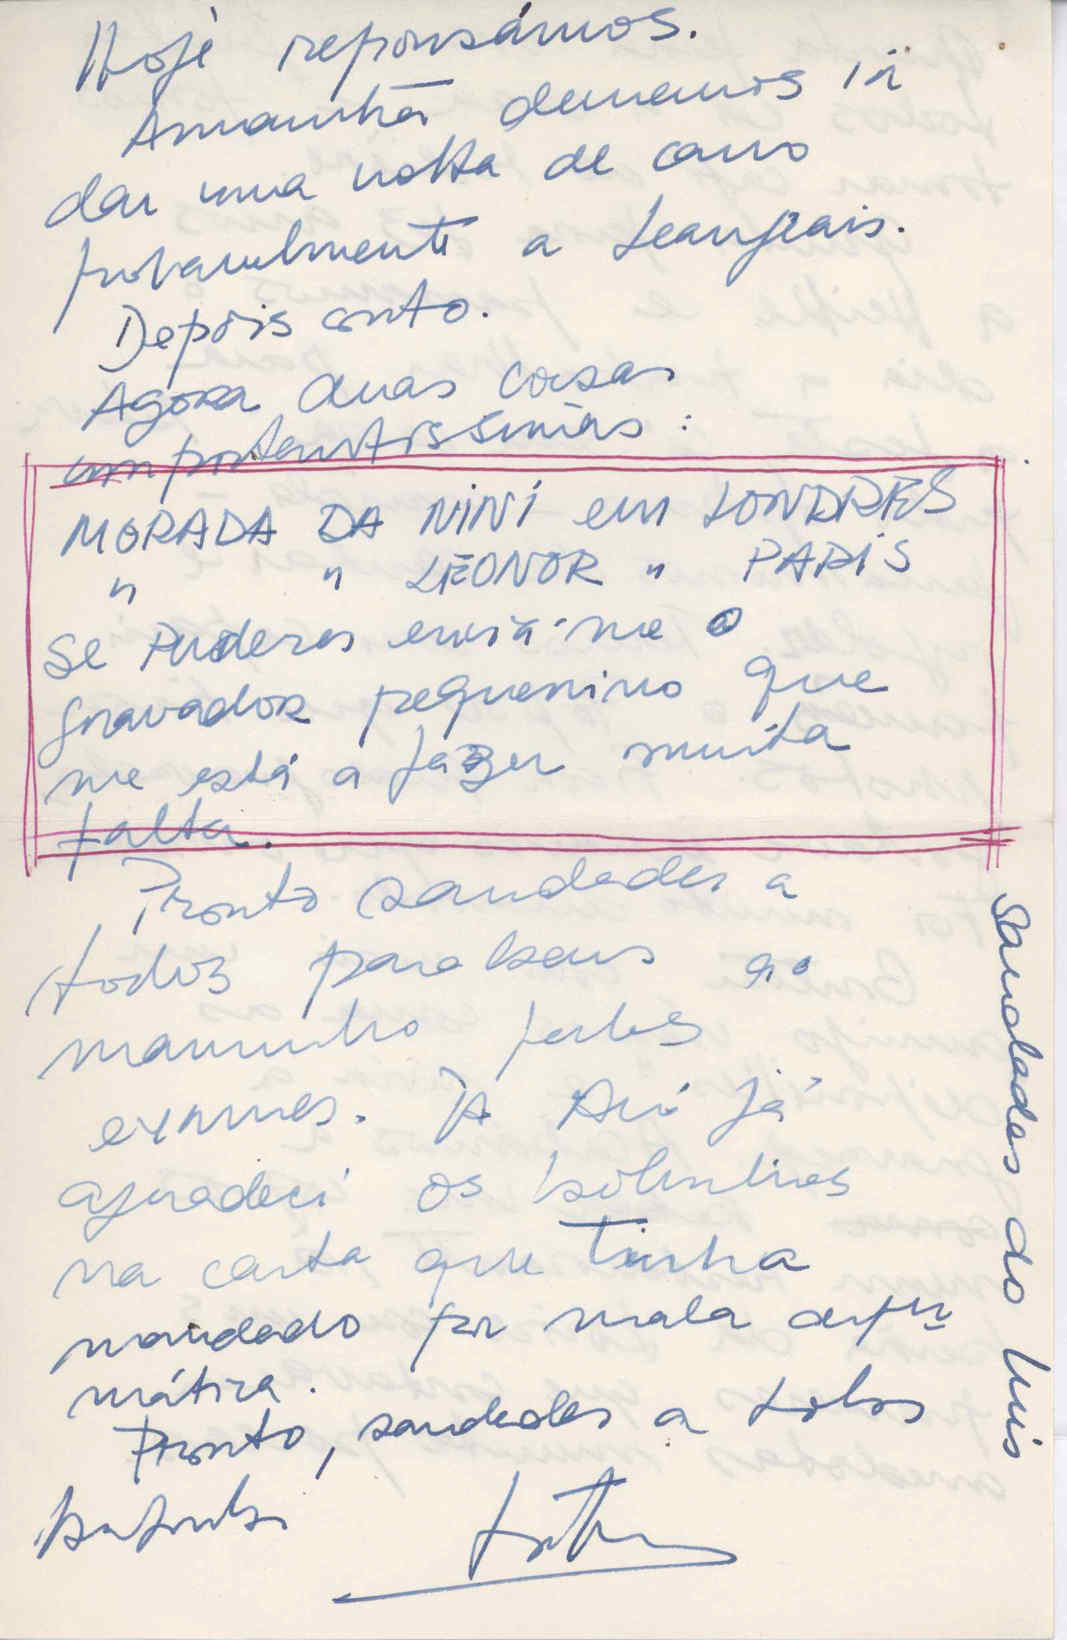 Hoje repousámos.
Amanhã devemos ir
dar uma volta de carro
provavelmente a
Depois conto.
Agora duas coisas
importantissimas:
MORADA DA NINI em LONDRES
" " LEONOR " PARIS
se Puderes envia-me o
gravador pequenino que
me está a fazer muita
falta.
Pronto saudades a
todos parabens ao
maninho pelos
exames. À Avó já
agradeci os bolinhos
na carta que tinha
mandado por mala diplo
mática.
Pronto, saudades a todos
Saudades do Luis